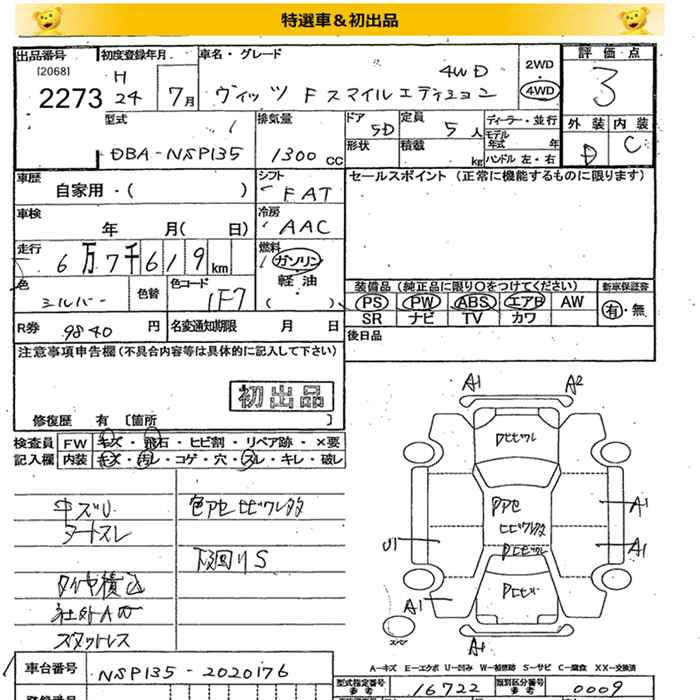 特選車&初出品
出品番号 初度登録年月 車名・グレード
[2068]
2273
H
24 7月
4WD
ヴィッツ Fスマイルエディション
2WD
4WD
評価点
3
外装 内装
D C
型式
DBA-NSP135
排気量
1300 cc
ドア
5D
定員
5人
形状 積載
kg
ディーラー・並行
モデル
年式 年
ハンドル 左・右
車歴
自家用・( )
シフト
FAT
車検
年 月( 日)
冷房
AAC
走行
6万7千619km
燃料
ガソリン
軽油
( )
色
シルバー
色替
色コード
1F7
R券 9840 円 名変通知期限 月 日
セールスポイント (正常に機能するものに限ります)
装備品(純正品に限り○をつけてください) 新車保証書
PS PW ABS エアB AW
有・無
SR ナビ TV カワ
後日品
注意事項申告欄(不具合内容等は具体的に記入して下さい)
初出品
修復歴 有 [箇所 ]
検査員 FW キズ・飛石・ヒビ割・リペア跡・×要
記入欄 内装 キズ・汚レ・コゲ・穴・スレ・キレ・破レ
色アセヒビワレ多
下廻りS
タイヤ積込
社外AW
スタットレス
A1 A2
Pヒビワレ
Pアセ
ヒビワレ多
Pヒビワレ
Pヒビ
A1
A1
U1
A1
A1
スペア
A-キズ E-エクボ U-凹み W-補修跡 S-サビ C-腐食 XX-交換済
車台番号 NSP135-2020176
型式指定番号
参考
16722
類別区分番号
参考
0009
登録番号